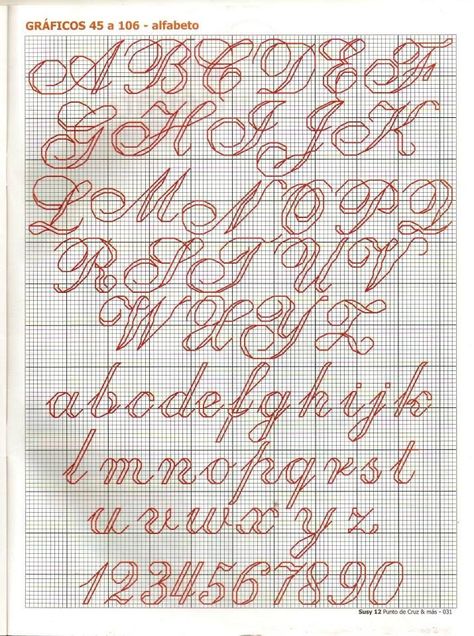 GRÁFICOS 45 a 106 - alfabeto
A B C D E F
G H I J K
L M N O P Q
R S T U V
W X Y Z
a b c d e f g h i j k
l m n o p q r s t
u v w x y z
1 2 3 4 5 6 7 8 9 0
Susy 12 Punto de Cruz & más - 031